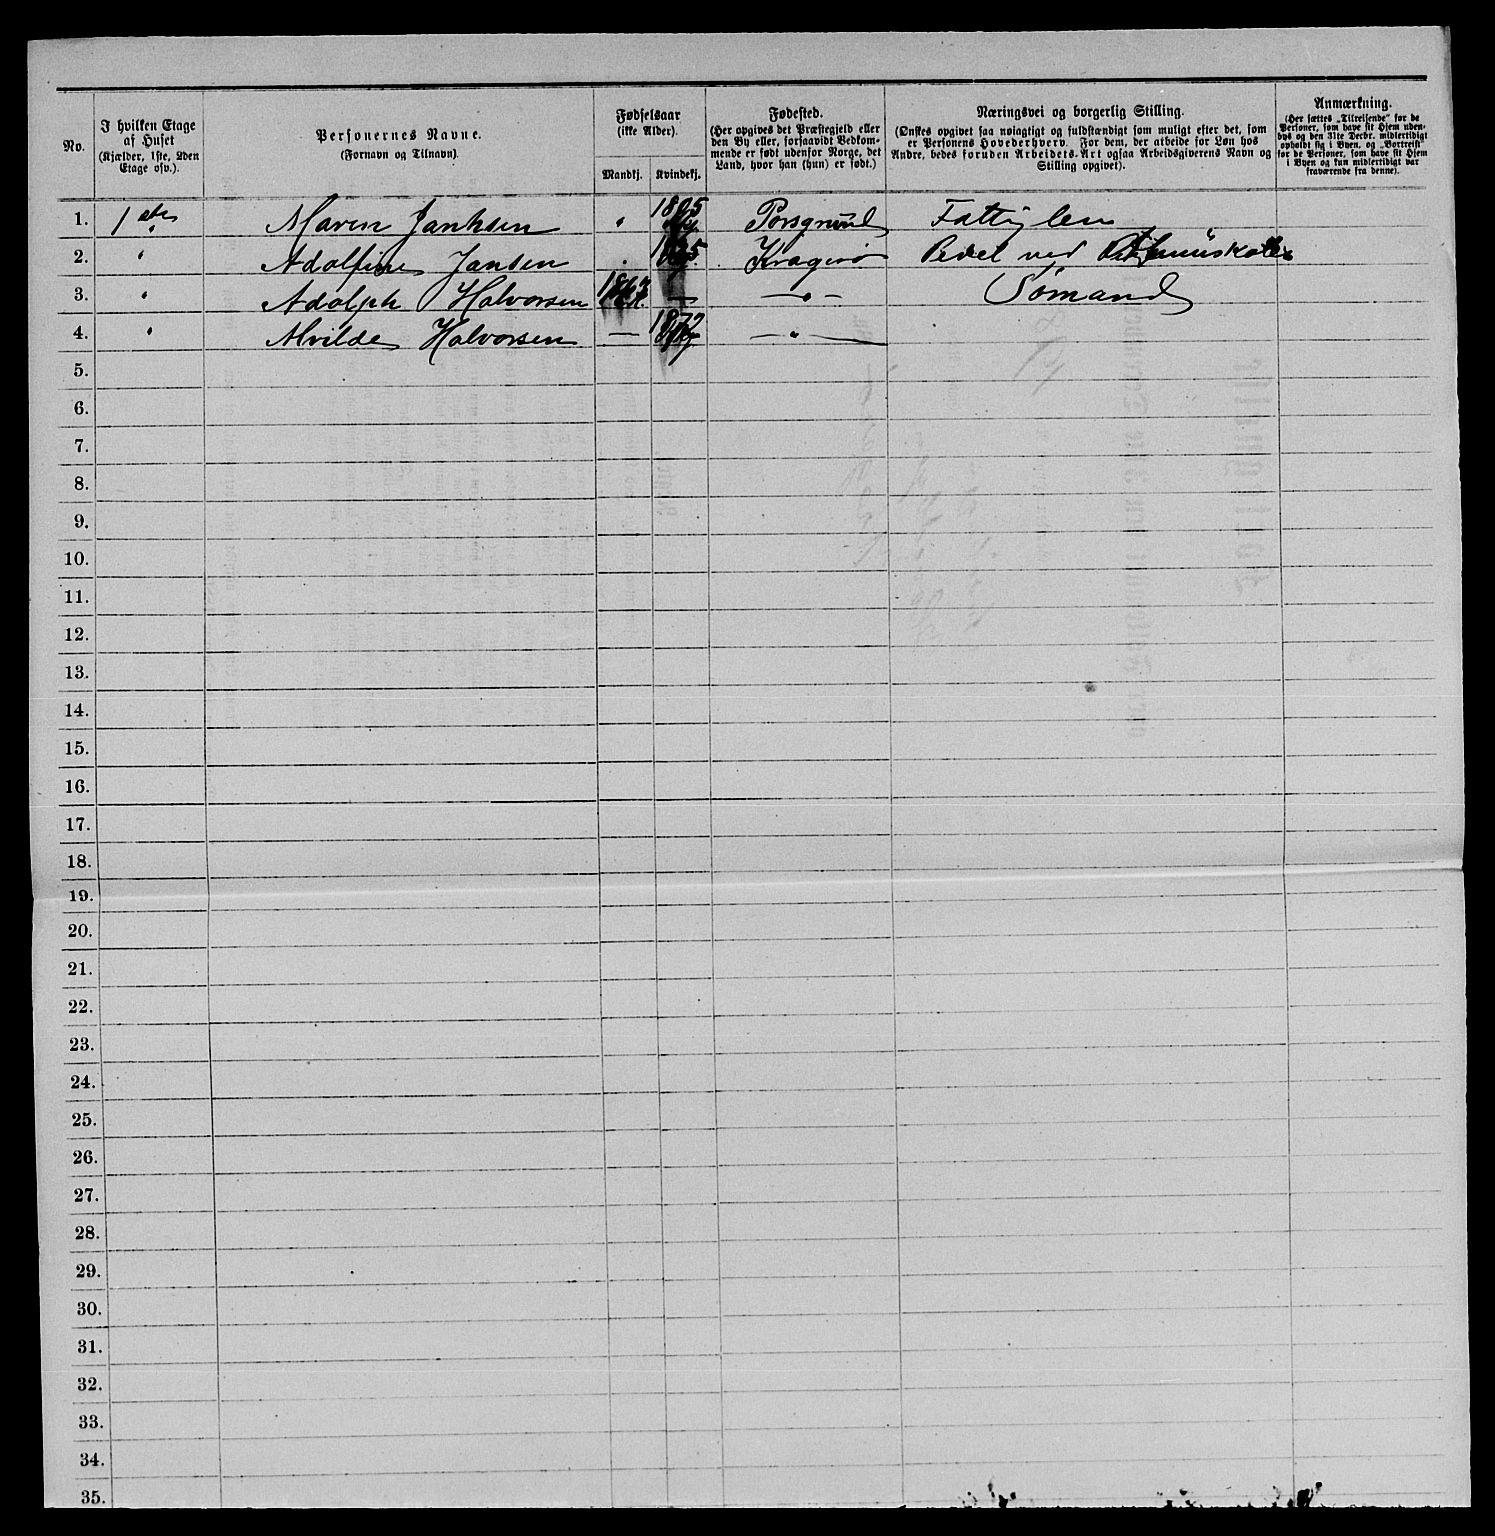 No.
I hvilken Etage af Huset
(Kjælder, 1ste, 2den Etage osv.).
Personernes Navne.
(Fornavn og Tilnavn).
Fødselsaar
(ikke Alder).
Mandkj. Kvindekj.
Fødested.
(Her opgives det Præstegjeld eller
den By eller, forsaavidt Vedkom-
mende er født udenfor Norge, det
Land, hvor han (hun) er født.)
Næringsvei og borgerlig Stilling.
(Ønskes opgivet saa nøiagtigt og fuldstændigt som muligt efter det, som
er Personens Hovederhverv. For dem, der arbeide for Løn hos
Andre, bedes foruden Arbeidets Art ogsaa Arbeidsgiverens Navn og
Stilling opgivet).
Anmærkning.
(Her sættes „Tilreisende" for de
Personer, som have sit Hjem uden-
bys og den 31te Decbr. midlertidigt
opholdt sig i Byen, og „Bortreist"
for de Personer, som have sit Hjem
i Byen og kun midlertidigt var
fraværende fra denne).
1. 1 ste Maren Janhsen " 1805 Porsgrund Fattiglem
2. " Adolfine Jansen " Kragerø Pedel ved
3. " Adolph Halvorsen 1863 — — " — Sømand
4. " Alvilde Halvorsen — 1872 — " —
5.
6.
7.
8.
9.
10.
11.
12.
13.
14.
15.
16.
17.
18.
19.
20.
21.
22.
23.
24.
25.
26.
27.
28.
29.
30.
31.
32.
33.
34.
35.